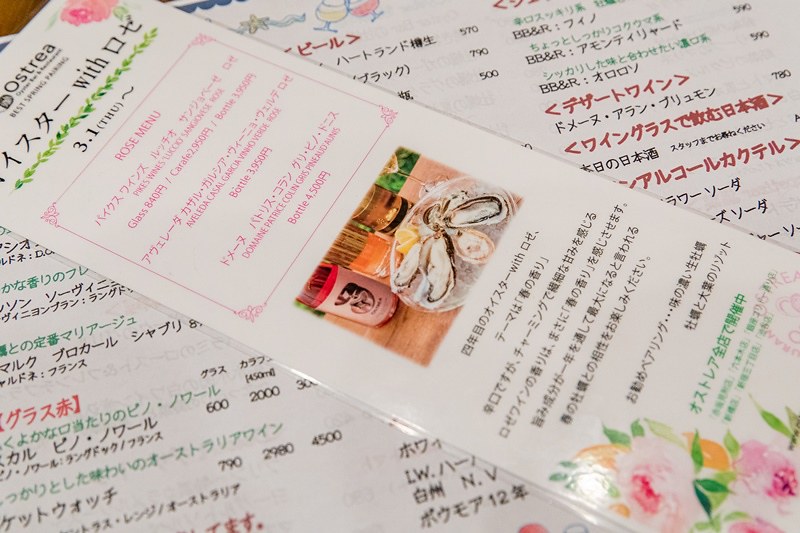 Ostrea
Oyster Bar & Restaurant
BEST SPRING PAIRING
イスター with ロゼ
3.1(THU)～
ROSE MENU
パイクス ワインズ ルッチオ サンジョベーゼ ロゼ
PIKES WINES 'LUCCIO' SANGIOVESE ROSE
Glass 840円 / Carafe 2,950円 / Bottle 3,950円
アヴェレーダ カザル・ガルシア・ヴィーニョ・ヴェルデ ロゼ
AVELEDA CASAL GARCIA VINHO VERDE ROSE
Bottle 3,950円
ドメーヌ パトリス・コラン グリ・ピノ・ドニス
DOMAINE PATRICE COLIN GRIS PINEAU D'AUNIS
Bottle 4,500円
四年目のオイスター with ロゼ、
テーマは「春の香り」
辛口ですが、チャーミングで繊細な甘みを感じる
ロゼワインの香りは、まさに「春の香り」を感じさせます。
旨み成分が一年を通して最大になると言われる
春の牡蠣との相性をお楽しみください。
お勧めペアリング・・・味の濃い生牡蠣
牡蠣と大葉のリゾット
オストレア全店で開催中
ビール＞
ハートランド樽生 570
(ブラック) 790
瓶 500
辛口スッキリ系
BB&R：フィノ 590
ちょっとしっかりコクウマ系
BB&R：アモンティリャード 590
シッカリした味と合わせたい濃口系
BB&R：オロロソ
＜デザートワイン＞
ドメーヌ・アラン・ブリュモン 780
＜ワイングラスで飲む日本酒＞
本日の日本酒 スタッフまでお尋ねください
ンアルコールカクテル＞
ラワー ソーダ
ズソーダ
かな香りのフレ
ソン ソーヴィニ
ヴィニヨンブラン：ラングド
との定番マリアージュ
マルク ブロカール シャブリ
ャルドネ：フランス
グラス カラフ
[450ml]
【グラス赤】
くよかな口当たりのピノ・ノワール 600 2000
スカル ピノ・ノワール
ピノ・ノワール：ラングドック/フランス
っかりとした味わいのオーストラリアワイン
790 2980 4500
ケットウォッチ
ケントラス・レンジ/オーストラリア
てます。
ホワイ
I.W.ハーパ
白州 N.V
ボウモア 12年